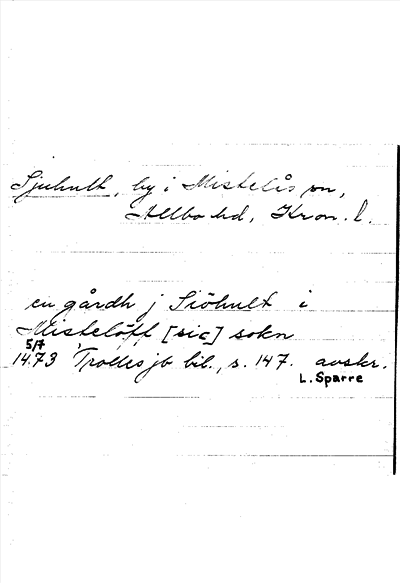 Sjuhult, by i Mistelås sn,
Allbo hd, Kron. l.
en gårdh j Siöhult i
Misteløff [sic] sokn
5/7
1473 Trollesjö bibl., s. 147. avskr.
L. Sparre